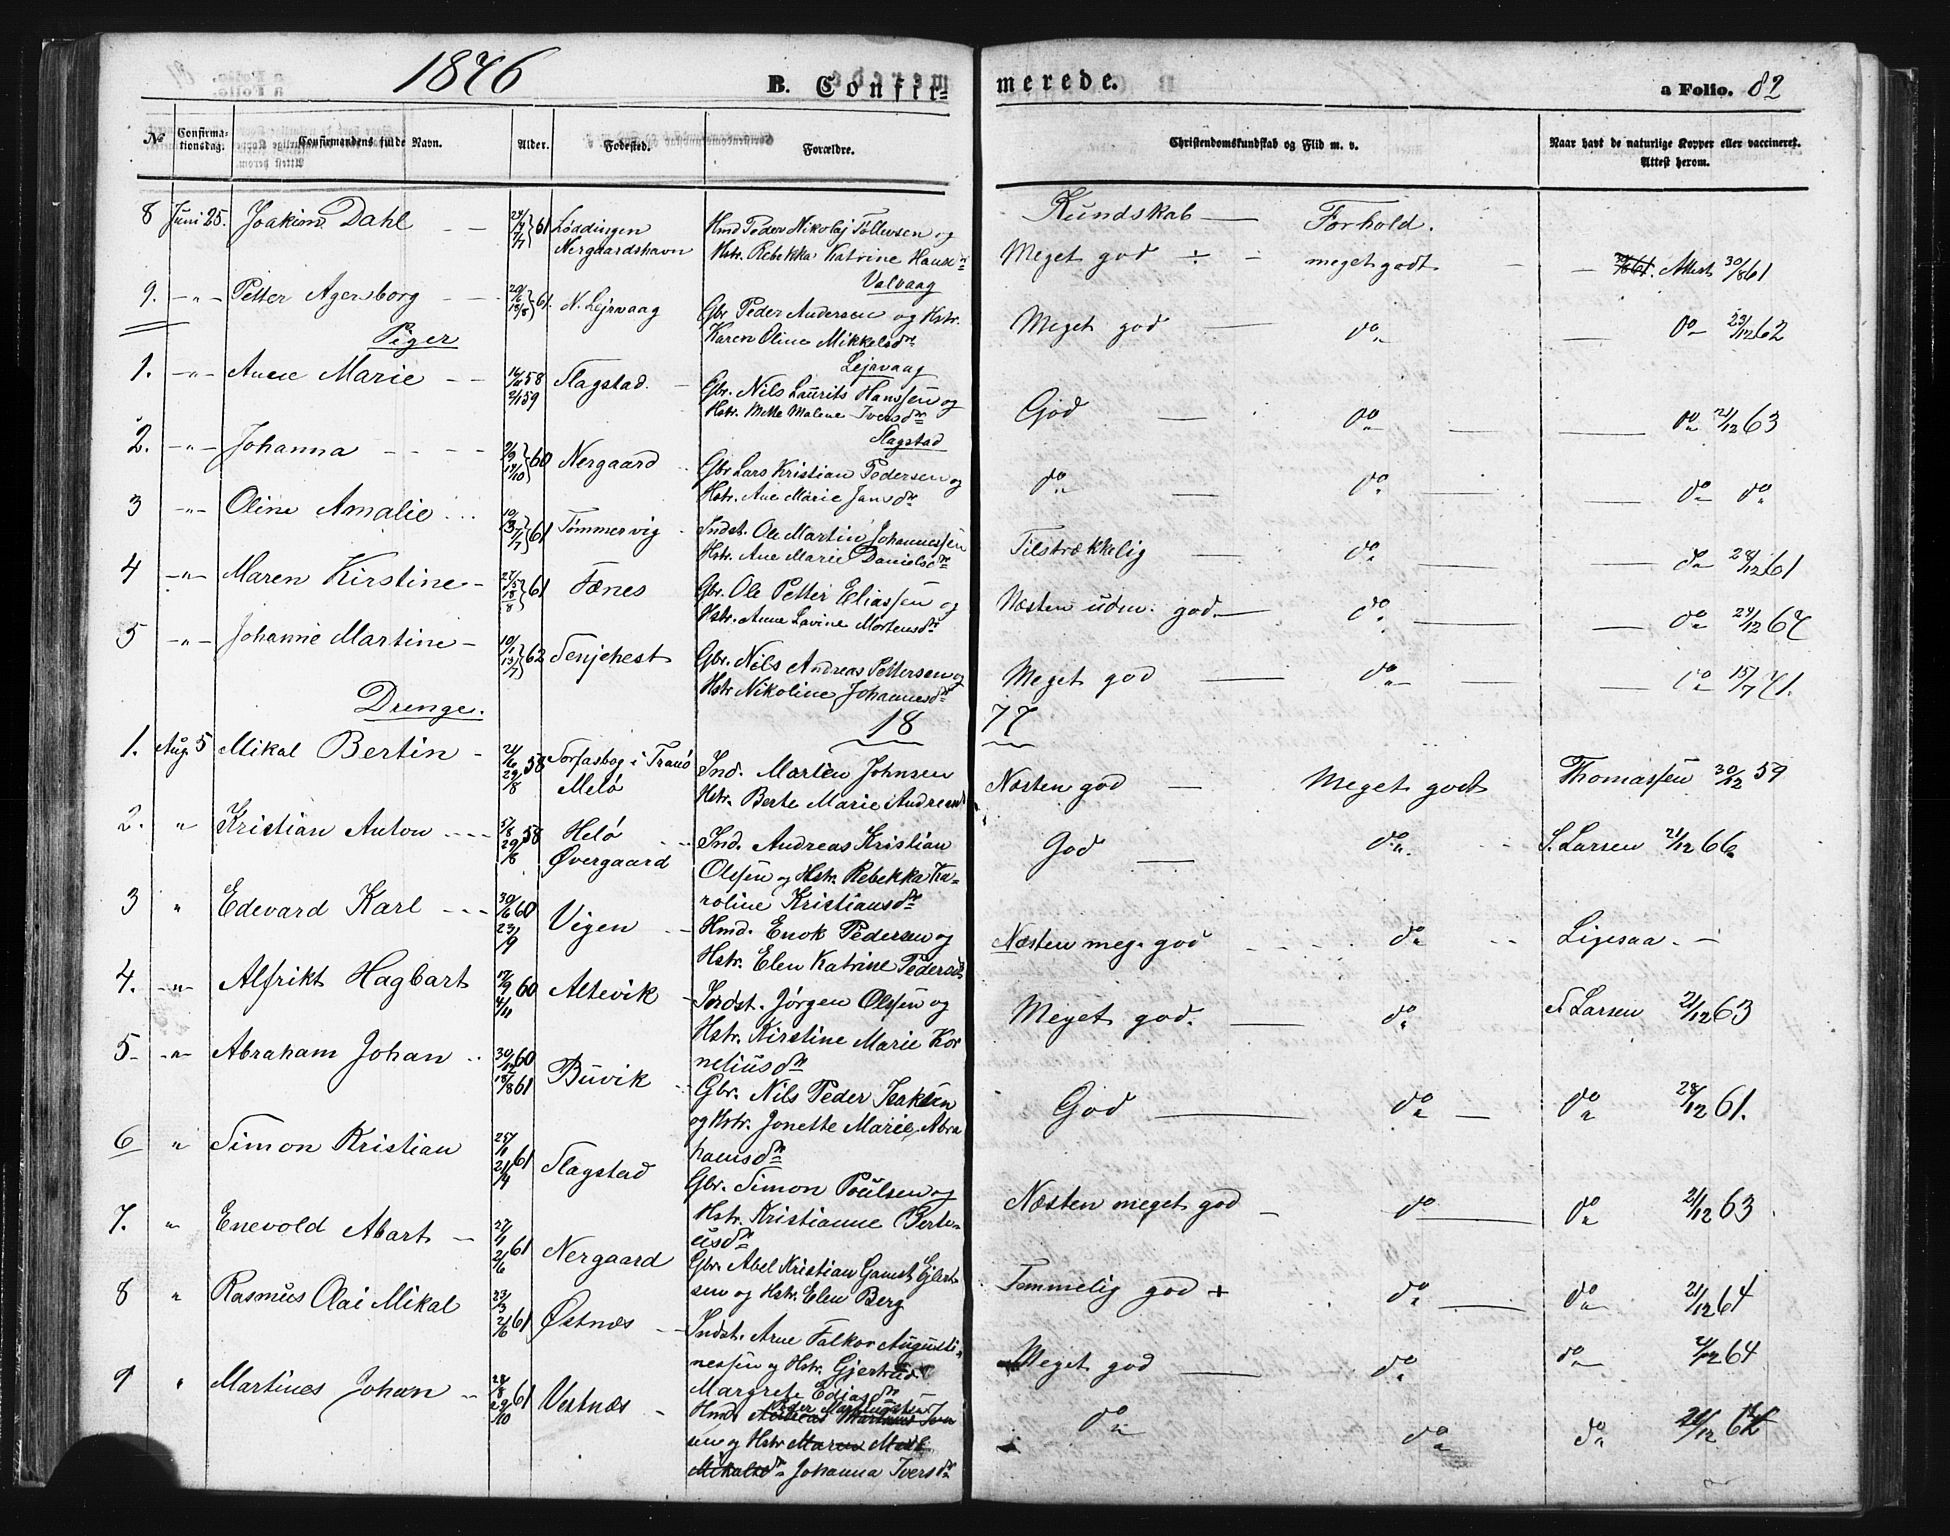 1876
B. Confir=
merede.
a Folio. 82
№ Confirma-tionsdag. Confirmandens fulde Navn. Alder. Fødested. Forældre. Christendomskundskab og Flid m. v. Naar havt de naturlige Kopper eller vaccineret. Attest herom.
Kundskab — Forhold.
8 Juni 25. Joakim Dahl 61 Løddingen Hmd Peder Nikolaj Tollevsen og
Nergaardshavn Hstr. Rebekka Katrine Hansdr Meget god ÷ meget godt Attest 30/8 61
Valvaag
9. -"- Petter Agersborg 61. N. Lejrvaag Gbr Peder Andersen og Hstr. Meget god do do 23/12 62
Piger Karen Oline Mikkelsdr
Lejrvaag
1. -"- Anne Marie 58 Slagstad. Gbr. Nils Laurits Hanssen og God do do 21/12 63
59 Hstr. Mette Malene Iversdr
Slagstad
2. -"- Johanna 60 Nergaard Gbr Lars Kristian Pedersen og do do do do
Hstr. Ane Marie Jansdr
3 -"- Oline Amalie 61 Tømmervig Indst. Ole Martin Johannessen Tilstrækkelig do do 28/12 61
Hstr. Ane Marie Danielsdr
4 -"- Maren Kirstine 61 Fænes Gbr. Ole Petter Eliassen og Næsten udm. god do do 67
Hstr. Anne Lavine Mortensdr
5 -"- Johanne Martine 10/1 62 Senjehest Gbr. Nils Andreas Pettersen og Meget god do do 15/7 71.
Hstr Nikoline Johannesdr
Drenge. 1877
1. Aug. 5 Mikal Bertin 58 Torfasbog i Tranø Ind. Martin Johnsen Næsten god Meget godt Thomassen 30/12 59
Melø Hstr. Berte Marie Andreasd
2. " Kristian Anton 58 Helø Ind. Andreas Kristian God do S. Larsen 21/12 66
Øvergaard Olsen og Hstr. Rebekka Ka-
roline Kristiansdr
3 " Edevard Karl 30/6 60 Vigen Hmd. Enok Pedersen og Næsten meg. god do Ligesaa
23/9 Hstr. Elen Katrine Pedersdr
4. -"- Alfrikt Hagbart 60 Altevik Indst. Jørgen Olsen og Meget god. do S Larsen 21/12 63
4/11 Hstr. Kirstine Marie Kor
neliusdr
5- -"- Abraham Johan 30/12 60 Buvik Gbr. Nils Peder Isaksen God do do 28/12 61.
18/8 61 og Hstr. Jonette Marie Abra
hamsdr
6 " Simon Kristian 61 Slagstad Gbr. Simon Poulsen og Næsten meget god do do 21/12 63
21/4 Hstr. Kristianne Berte-
usdr
7. " Enevold Abart 27/1 61 Nergaard Gbr. Abel Kristian Gamst Ejlert Temmelig god + do do 21/12 64
2/6 sen og Hstr. Elen Berg
8 " Rasmus Olai Mikal 23/3 61 Østnæs Indst. Arne Falkor Augusti- Meget god do do 21/12 64
2/6 nessen og Hstr. Gjertrud
Margrete Ediasdr
9 " Martines Johan 61 Vestnæs Hmd. Peder Martinussen do do do
29/10 sen og Hstr Maren
Mikalsdr Johanna Iversdr